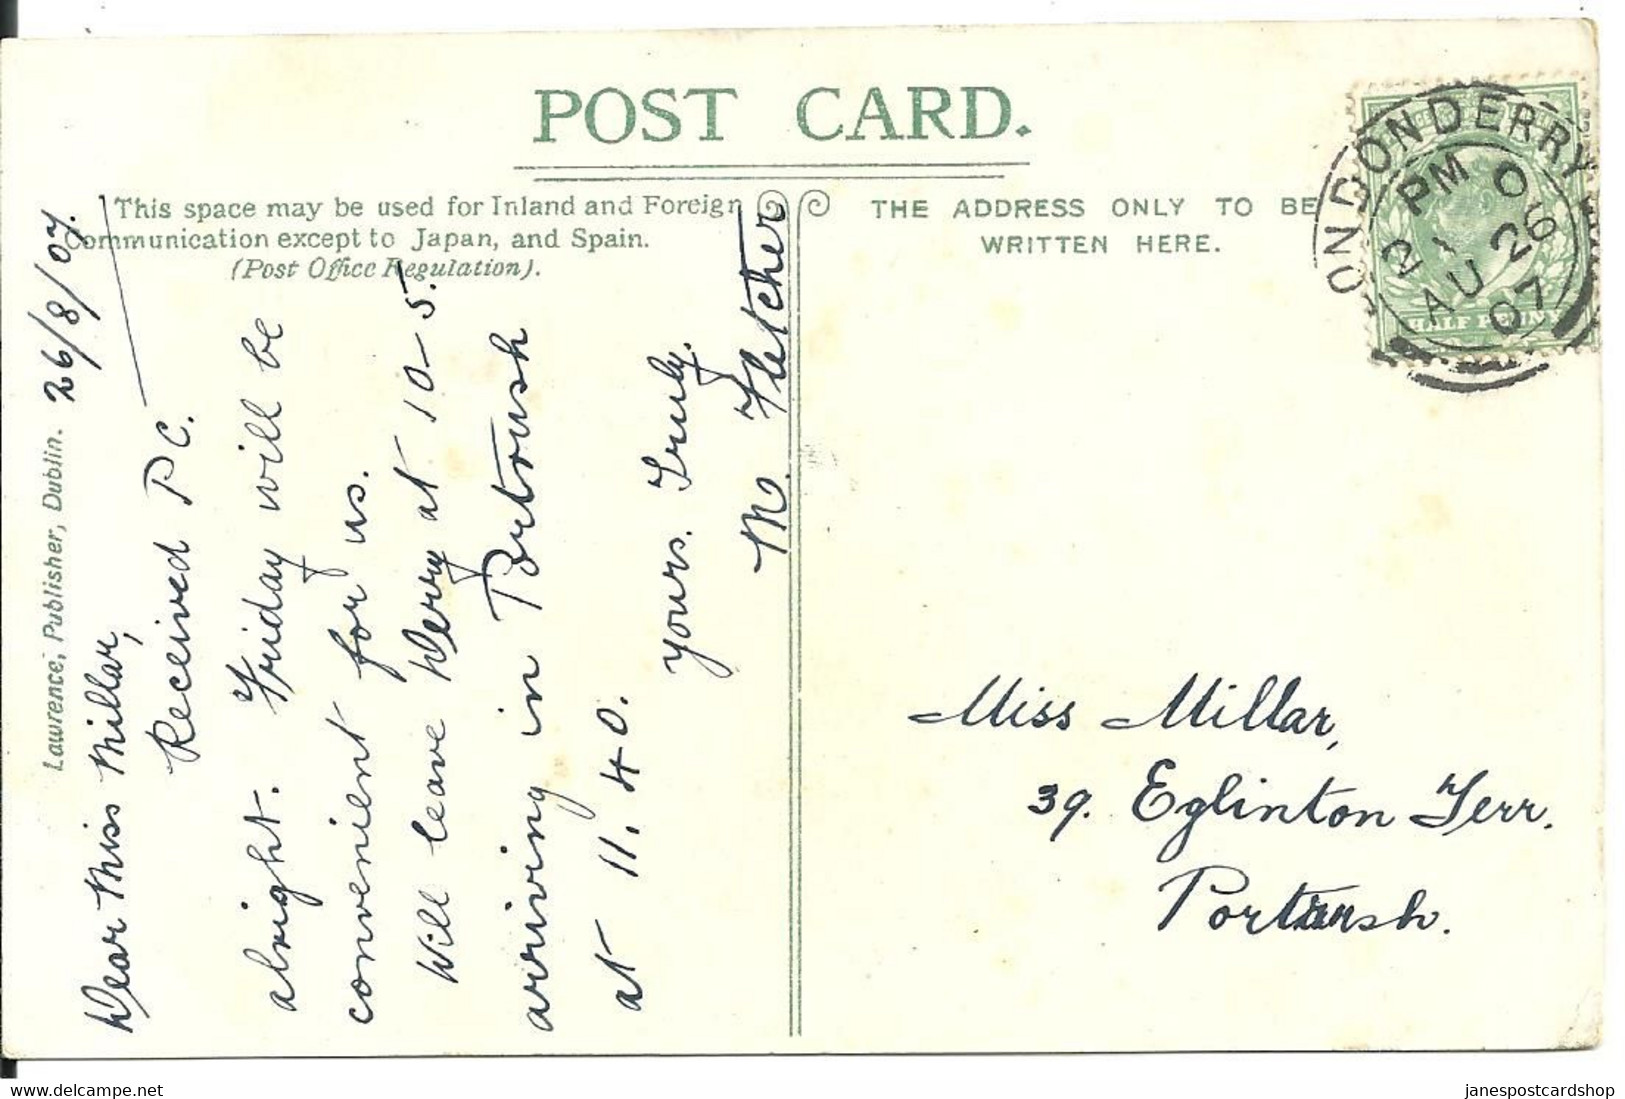 POST CARD.
This space may be used for Inland and Foreign
Communication except to Japan, and Spain.
(Post Office Regulation).
THE ADDRESS ONLY TO BE
WRITTEN HERE.
LONDONDERRY
2 PM
AU 26
07
HALF PENNY
Lawrence, Publisher, Dublin.
26/8/07.
Dear Miss Millar,
Received P C.
alright. Friday will be
convenient for us.
Will leave Derry at 10-5.
arriving in Portrush
at 11.40.
yours. Truly.
M. Fletcher
Miss Millar,
39. Eglinton Terr.
Portrush.
www.delcampe.net
janespostcardshop